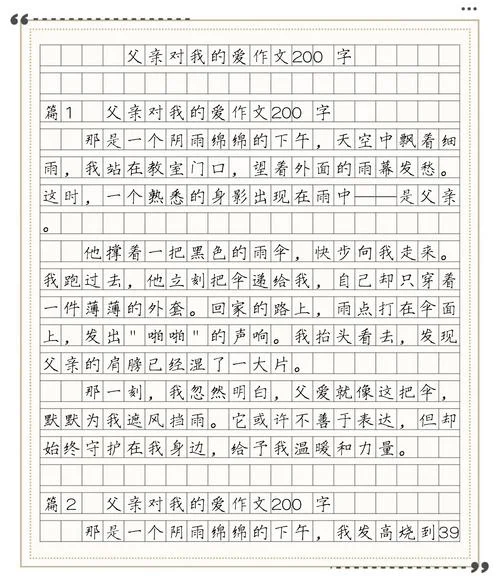 父亲对我的爱作文200 字
篇1 父亲对我的爱作文200 字
那是一个阴雨绵绵的下午，天空中飘着细
雨，我站在教室门口，望着外面的雨幕发愁。
这时，一个熟悉的身影出现在雨中——是父亲
。
他撑着一把黑色的雨伞，快步向我走来。
我跑过去，他立刻把伞递给我，自己却只穿着
一件薄薄的外套。回家的路上，雨点打在伞面
上，发出"啪啪"的声响。我抬头看去，发现
父亲的肩膀已经湿了一大片。
那一刻，我忽然明白，父爱就像这把伞，
默默为我遮风挡雨。它或许不善于表达，但却
始终守护在我身边，给予我温暖和力量。
篇2 父亲对我的爱作文200 字
那是一个阴雨绵绵的下午，我发高烧到39